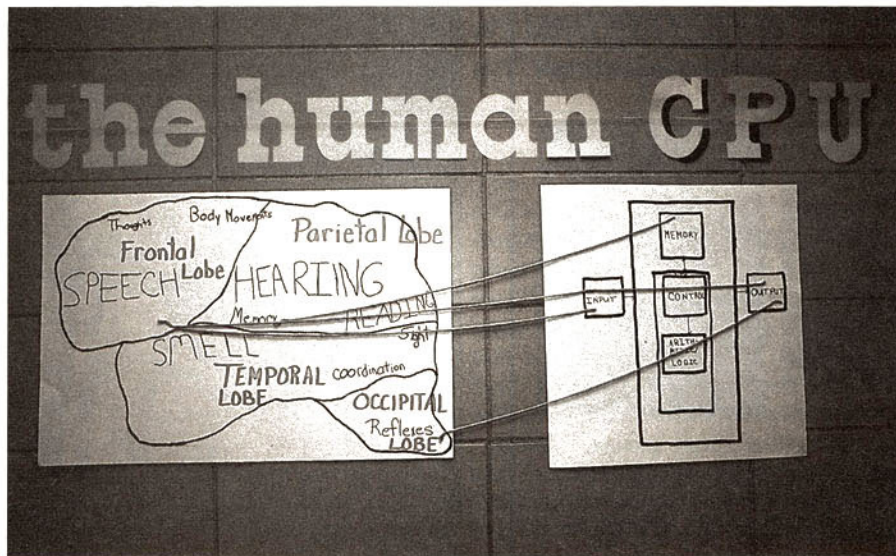 the human CPU
Thoughts
Body Movements
Frontal
Lobe
SPEECH
Parietal Lobe
HEARIING
Memory
READING
Sight
SMELL
TEMPORAL
LOBE
coordination
OCCIPITAL
Reflexes
LOBE
MEMORY
INPUT
CONTROL
OUTPUT
LOGIC